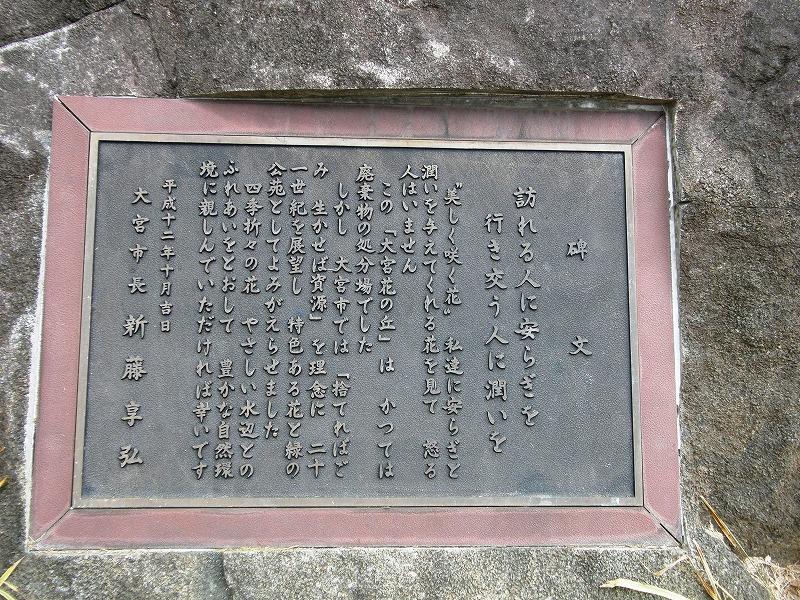 碑文
訪れる人に安らぎを
行き交う人に潤いを
〝美しく咲く花〟 私達に安らぎと
潤いを与えてくれる花を見て 怒る
人はいません
この「大宮花の丘」は かつては
廃棄物の処分場でした
しかし 大宮市では 「捨てればご
み 生かせば資源」を理念に 二十
一世紀を展望し 特色ある花と緑の
公苑としてよみがえらせました
四季折々の花 やさしい水辺との
ふれあいをとおして 豊かな自然環
境に親しんでいただければ幸いです
平成十二年十月吉日
大宮市長 新藤享弘